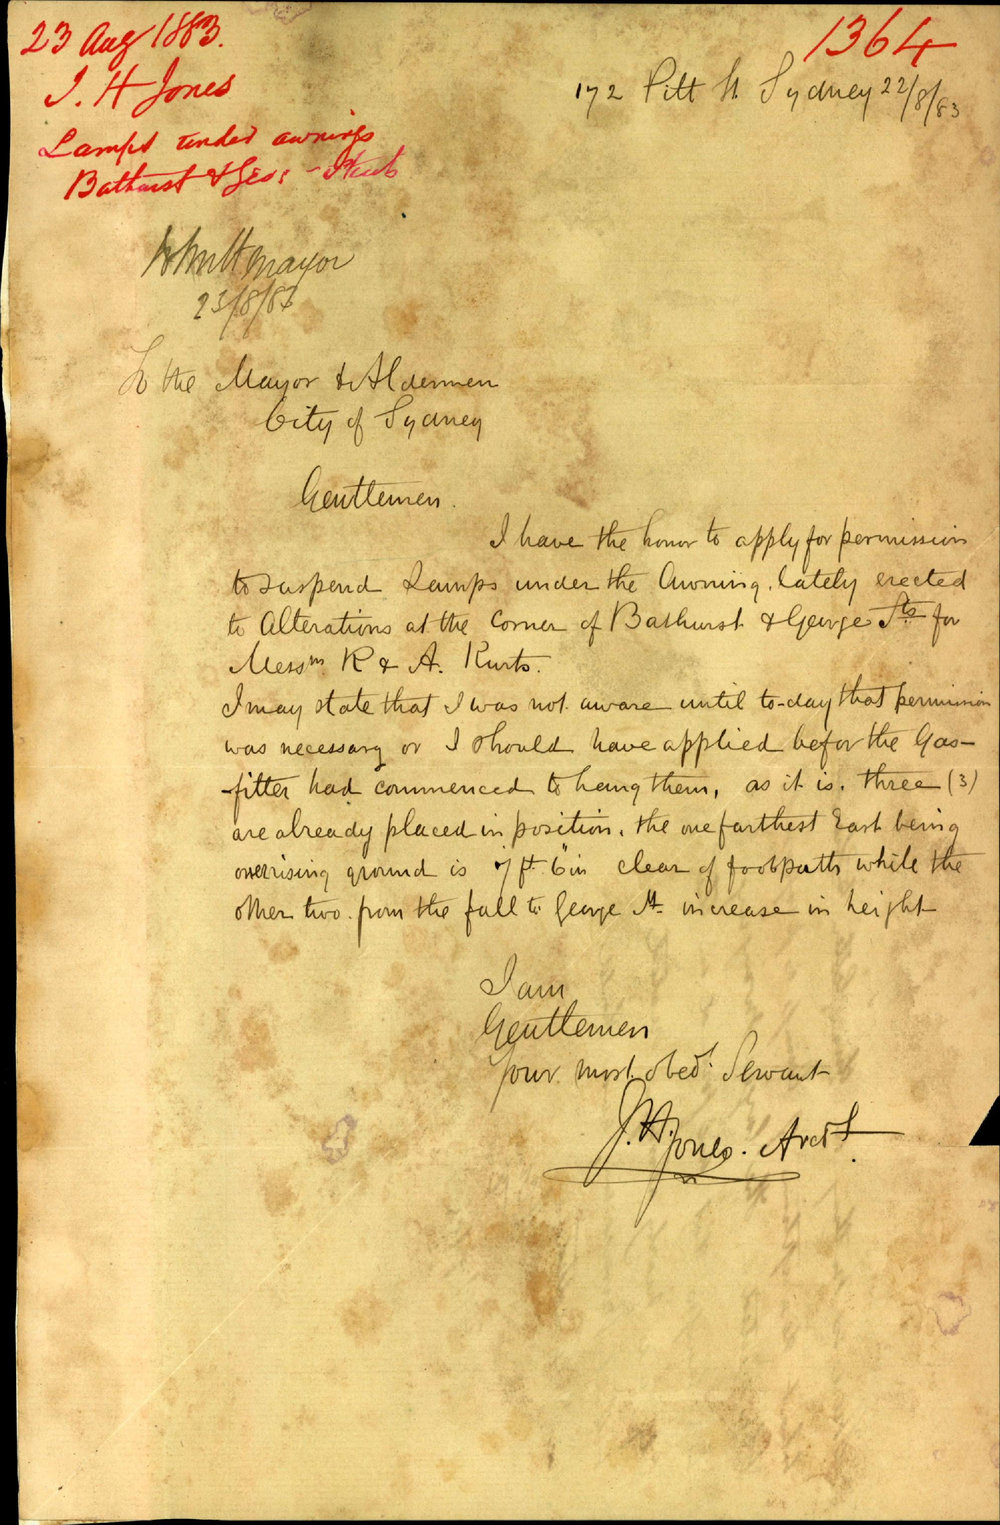 23 Aug 1883.
J. H Jones
Lamps under awnings
Bathurst & Geo:
1364
172 Pitt St. Sydney 22/8/83
Mayor
23/8/83
To the Mayor & Aldermen
City of Sydney
Gentlemen.
I have the honor to apply for permission
to suspend Lamps under the Awning. lately erected
to Alterations at the Corner of Bathurst & George Sts. for
Messrs R & A. Kurts.
I may state that I was not aware until to-day that permission
was necessary or I should have applied befor the Gas-
fitter had commenced to hang them, as it is. three (3)
are already placed in position. the one farthest East being
on rising ground is 7 ft. 6 in clear of footpath while the
other two. from the fall to George St. increase in height
I am
Gentlemen
Your most. obedt. Servant
J. H. Jones. Archt.